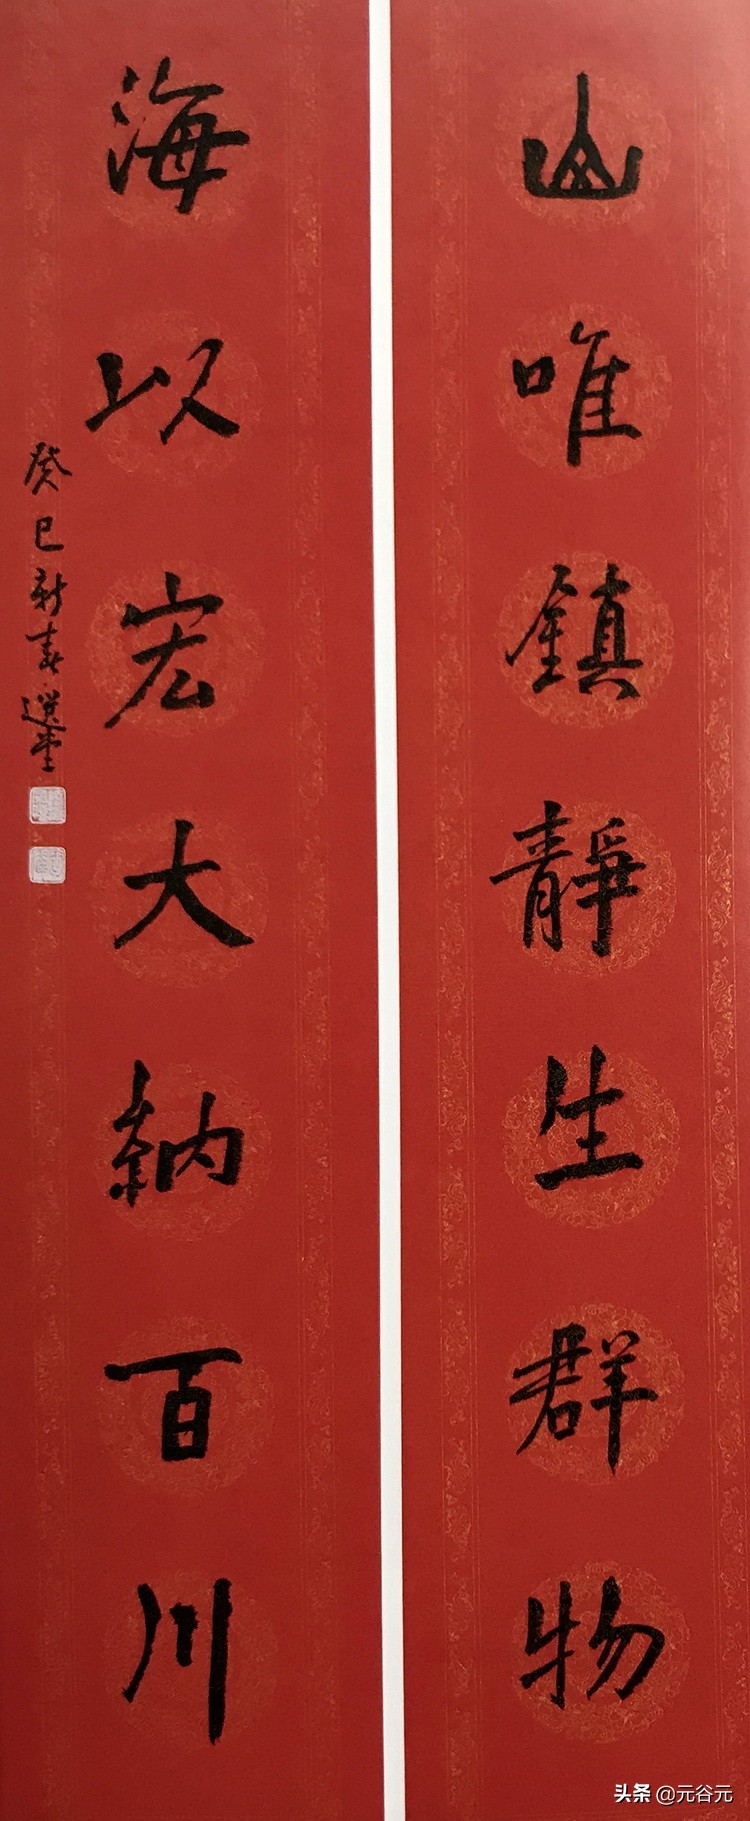 山唯鎮靜生群物
海以宏大納百川
癸巳新春選堂
头条 @元谷元